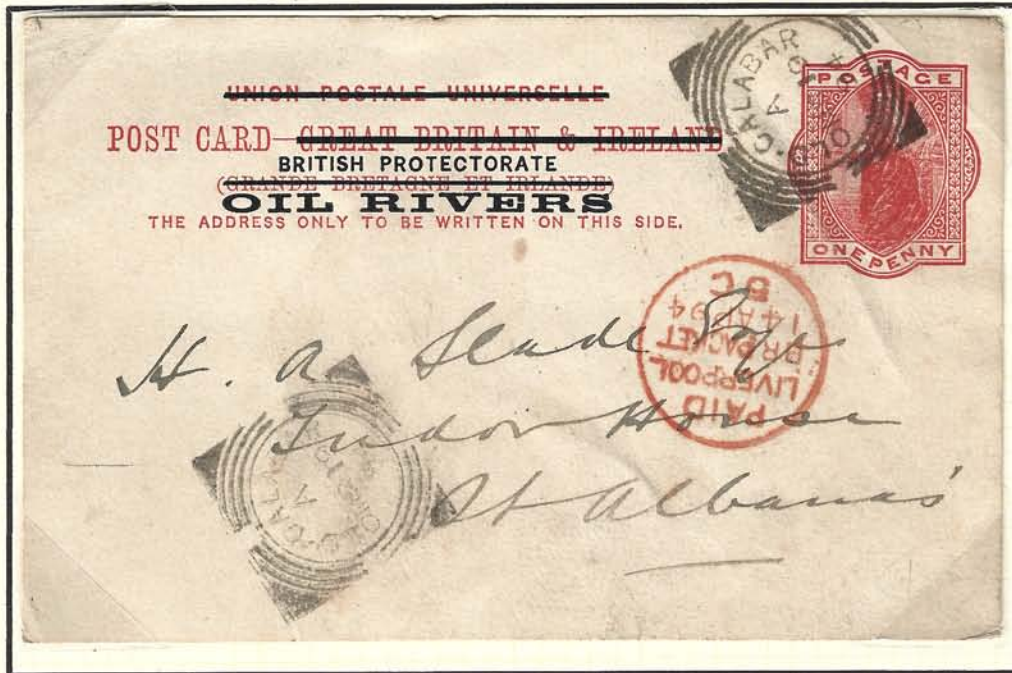 UNION POSTALE UNIVERSELLE
POST CARD GREAT BRITAIN & IRELAND
BRITISH PROTECTORATE
(GRANDE BRETAGNE ET IRLANDE)
OIL RIVERS
THE ADDRESS ONLY TO BE WRITTEN ON THIS SIDE.
CALABAR
A
POSTAGE
ONE PENNY
PAID
LIVERPOOL
BR PACKET
14 AP 94
5 C
H. A. Slade Esqr
Tudor House
St Albans